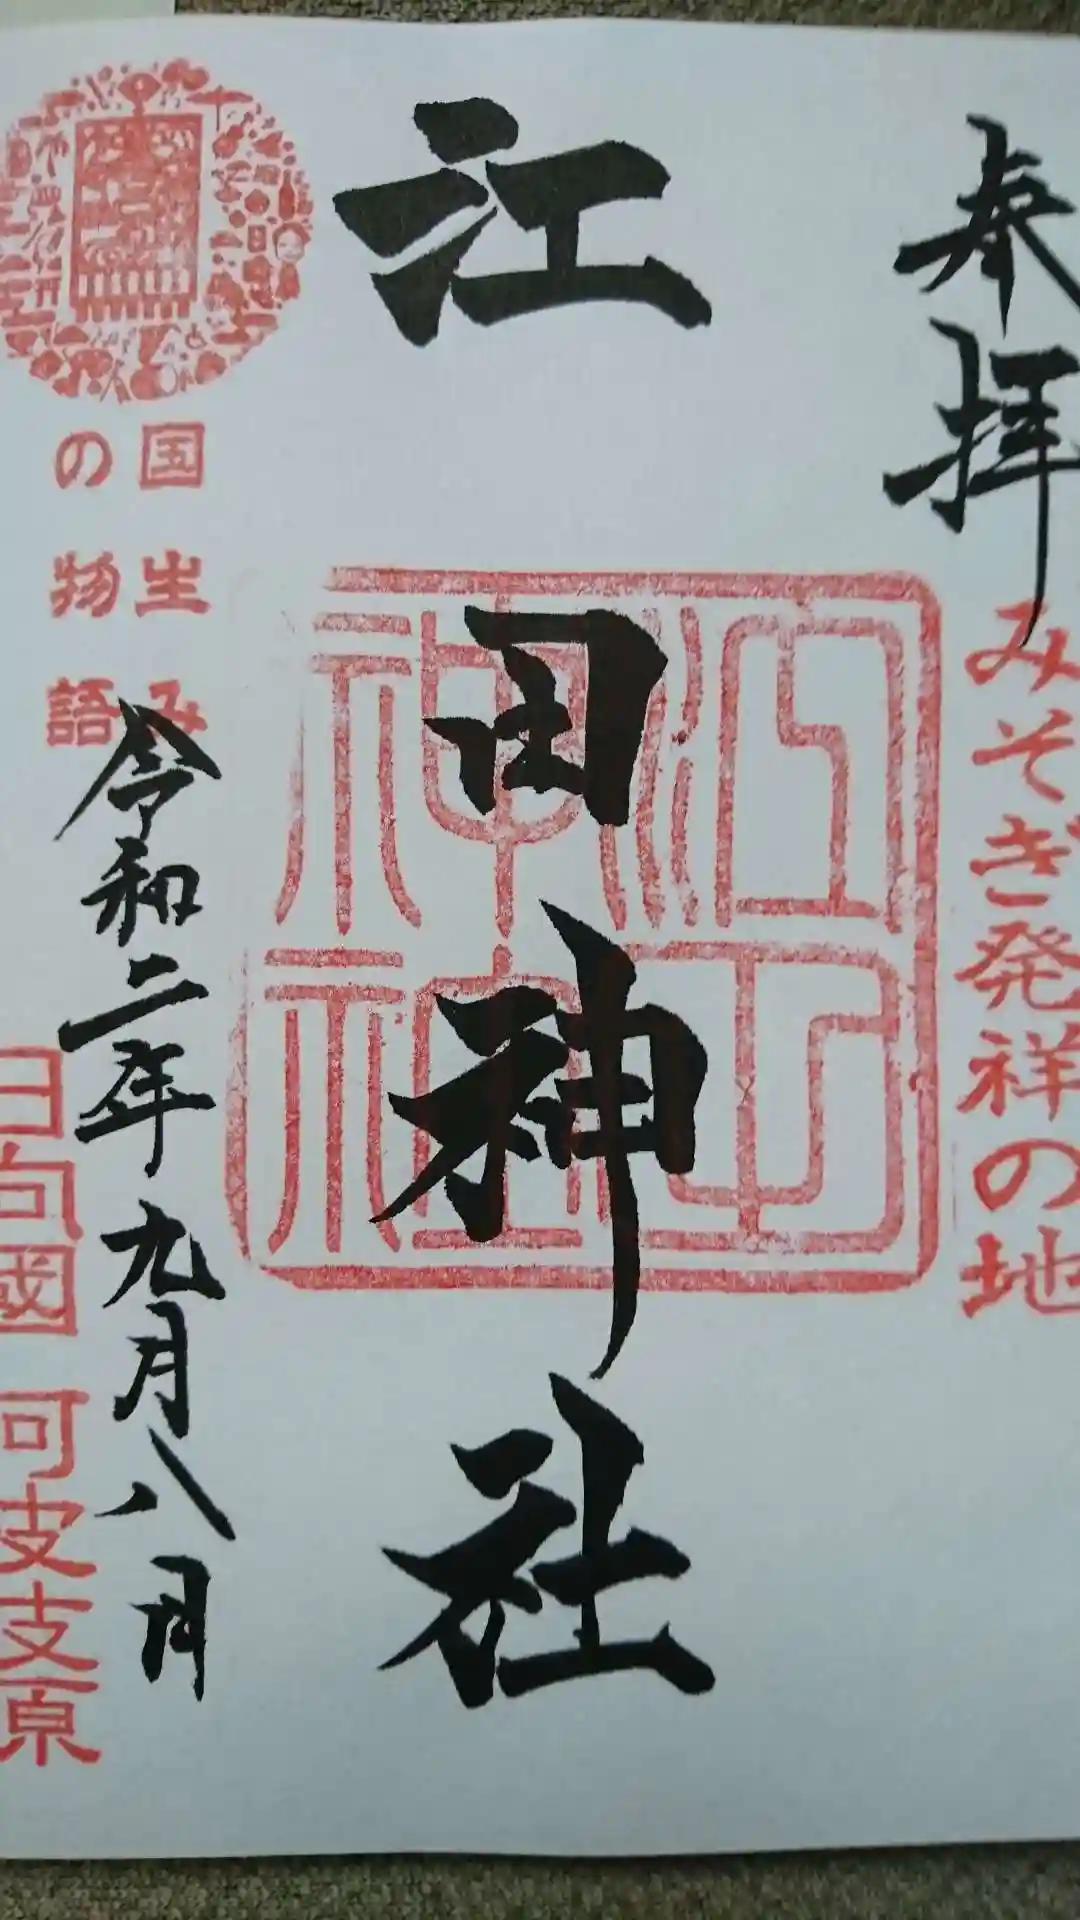 奉拝
みそぎ発祥の地
江田神社
江田神社
国生み
の物語
令和二年九月八日
日向國 阿支原